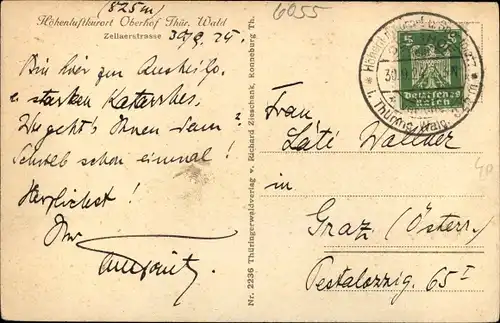 825 m
Höhenluftkurort Oberhof Thür. Wald
Zellaerstrasse 30/9. 25.
6055
Bin hier zur Ausheilg.
e starken Katarrhes,
Wie geht's Ihnen denn?
Schreib schon einmal!
Herzlichst!
Ihr
Nr. 2236 Thüringerwaldverlag v. Richard Zieschank, Ronneburg Th.
5
Deutsches
Reich
i. Thüring. Wald. 825 m
Frau
Láti Wallner
in
Graz (Österr.)
Pestalozzig. 65 I